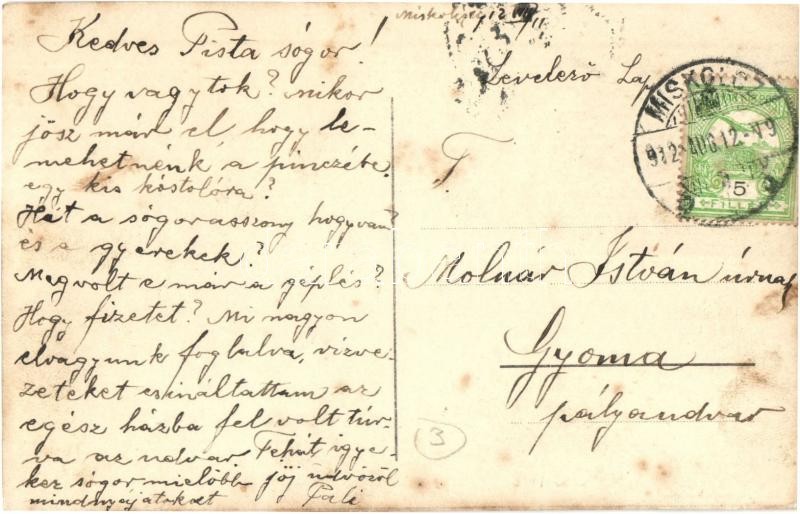 Kedves Pista sógor!
Hogy vagytok? Mikor
jösz már el hogy le-
mehetnénk a pinczébe
egy kis kóstolóra?
Hát a sógorasszony hogy van?
és a gyerekek?
Megvolt e már a géplés?
Hogy fizetet? Mi nagyon
elvagyunk foglalva, vizve-
zeteket csináltattam az
egész házba fel volt túr-
va az udvar Tehát igye-
kez sógor mielőbb jöj üdvözöl
mindnyájatokat Pali
Miskolcz
Levelező Lap
MISKOLCZ
912 AUG 12
5
FILLÉR
T.
Molnár István úrnak
Gyoma
pályaudvar
3